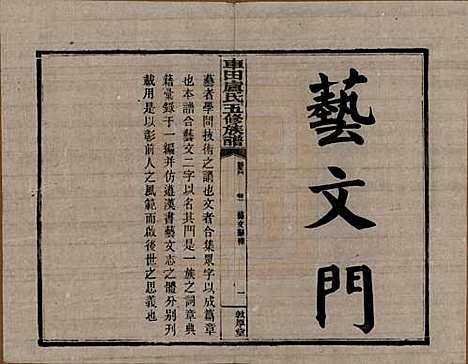 藝文門
車田盧氏五修族譜
藝文
一
敦厚堂
藝者學問技術之謂也文者合集眾字以成篇章
也本譜合藝文二字以名其門是一族之詞章典
籍彙錄于一編并仿遵漢書藝文志之體外別刊
載用是以彰前人之風範而啟後世之思義也